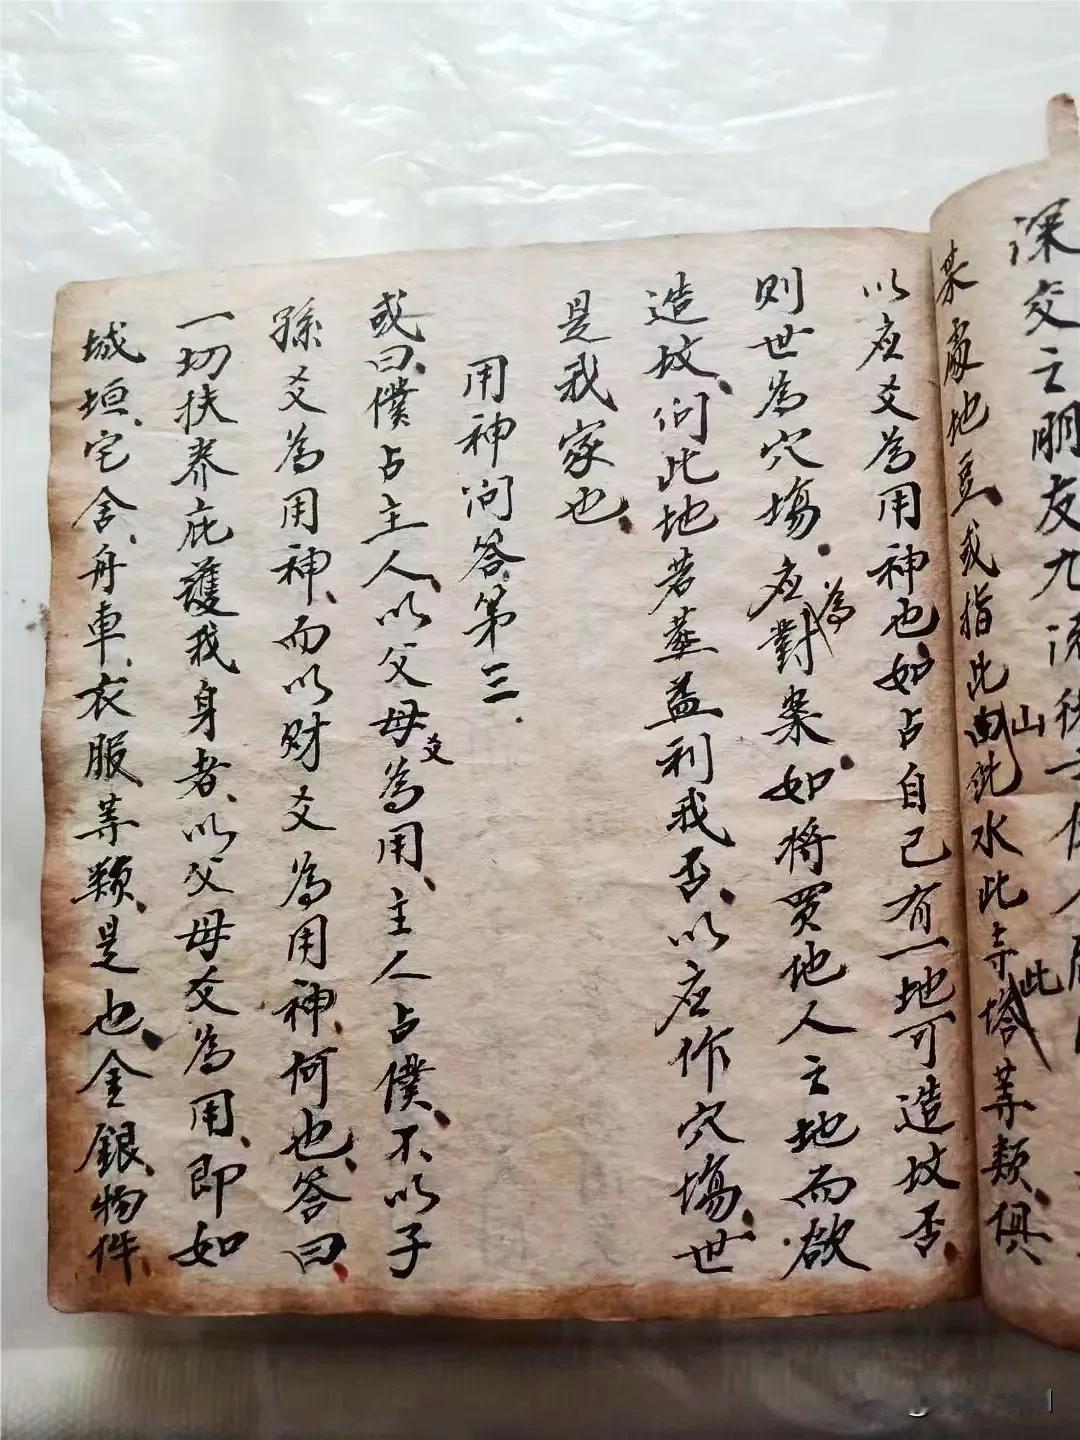 深交之朋友九流
某處地亘或指此山此水此寺此塔等類俱
以应爻為用神也如占自己有一地可造坟否
則世為穴塲应為對案如将買他人之地而欲
造坟问此地若塟益利我否以应作穴塲世
是我家也
用神问答第三
或曰僕占主人以父母爻為用主人占僕不以子
孫爻為用神而以财爻為用神何也答曰
一切扶养庇護我身者以父母爻為用即如
城垣宅舍舟車衣服等類是也金銀物件